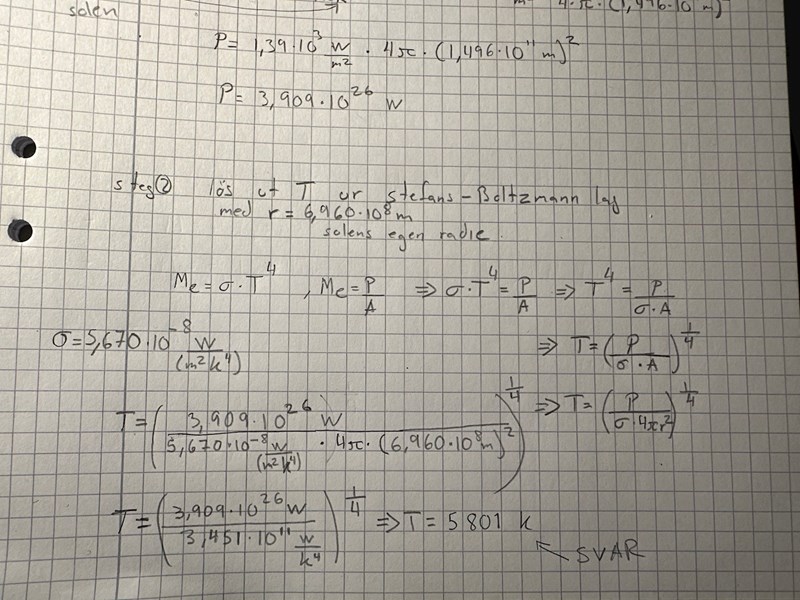 solen
4·π·(1,496·10 m)²
P = 1,39·10³ W/m² · 4π·(1,496·10¹¹ m)²
P = 3,909·10²⁶ W
steg ② lös ut T ur stefans-Boltzmann lag
med r = 6,960·10⁸ m
solens egen radie.
Me = σ·T⁴ , Me = P/A ⇒ σ·T⁴ = P/A ⇒ T⁴ = P/(σ·A)
σ = 5,670·10⁻⁸ W/(m²K⁴)
⇒ T = (P/(σ·A))^(1/4)
⇒ T = (P/(σ·4πr²))^(1/4)
T = (3,909·10²⁶ W / (5,670·10⁻⁸ W/(m²K⁴) · 4π·(6,960·10⁸ m)²))^(1/4)
T = (3,909·10²⁶ W / (3,451·10¹¹ W/K⁴))^(1/4) ⇒ T = 5 801 K
← SVAR